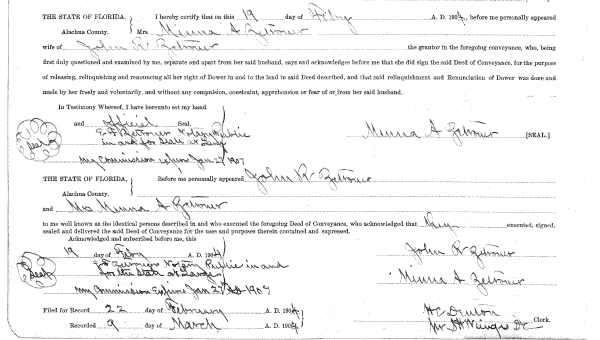 THE STATE OF FLORIDA, I hereby certify that on this 19 day of Feby A. D. 1904, before me personally appeared
Alachua County. Mrs. Minna A Zetrouer
wife of John R. Zetrouer the grantor in the foregoing conveyance, who, being
first duly questioned and examined by me, separate and apart from her said husband, says and acknowledges before me that she did sign the said Deed of Conveyance, for the purpose
of releasing, relinquishing and renouncing all her right of Dower in and to the land in said Deed described, and that said relinquishment and Renunciation of Dower was done and
made by her freely and voluntarily, and without any compulsion, constraint, apprehension or fear of or from her said husband.
In Testimony Whereof, I have hereunto set my hand
and official Seal.
Seal E. F. Zetrouer Notary Public Minna A Zetrouer [SEAL.]
in and for State at Large
My Commission expires Jan 27 1907
THE STATE OF FLORIDA, Before me personally appeared John R Zetrouer
Alachua County.
and Mrs Minna A Zetrouer
to me well known as the identical persons described in and who executed the foregoing Deed of Conveyance, who acknowledged that they executed, signed,
sealed and delivered the said Deed of Conveyance for the uses and purposes therein contained and expressed.
Acknowledged and subscribed before me, this
19 day of Feby A. D. 1904 John R Zetrouer
Seal Zetrouer Notary Public in and
for the State at Large Minna A Zetrouer
My Commission Expires Jan 27 1907
Filed for Record 22 day of February A. D. 1904 H. C. Denton
Clerk.
Recorded 9 day of March A. D. 1904 DC